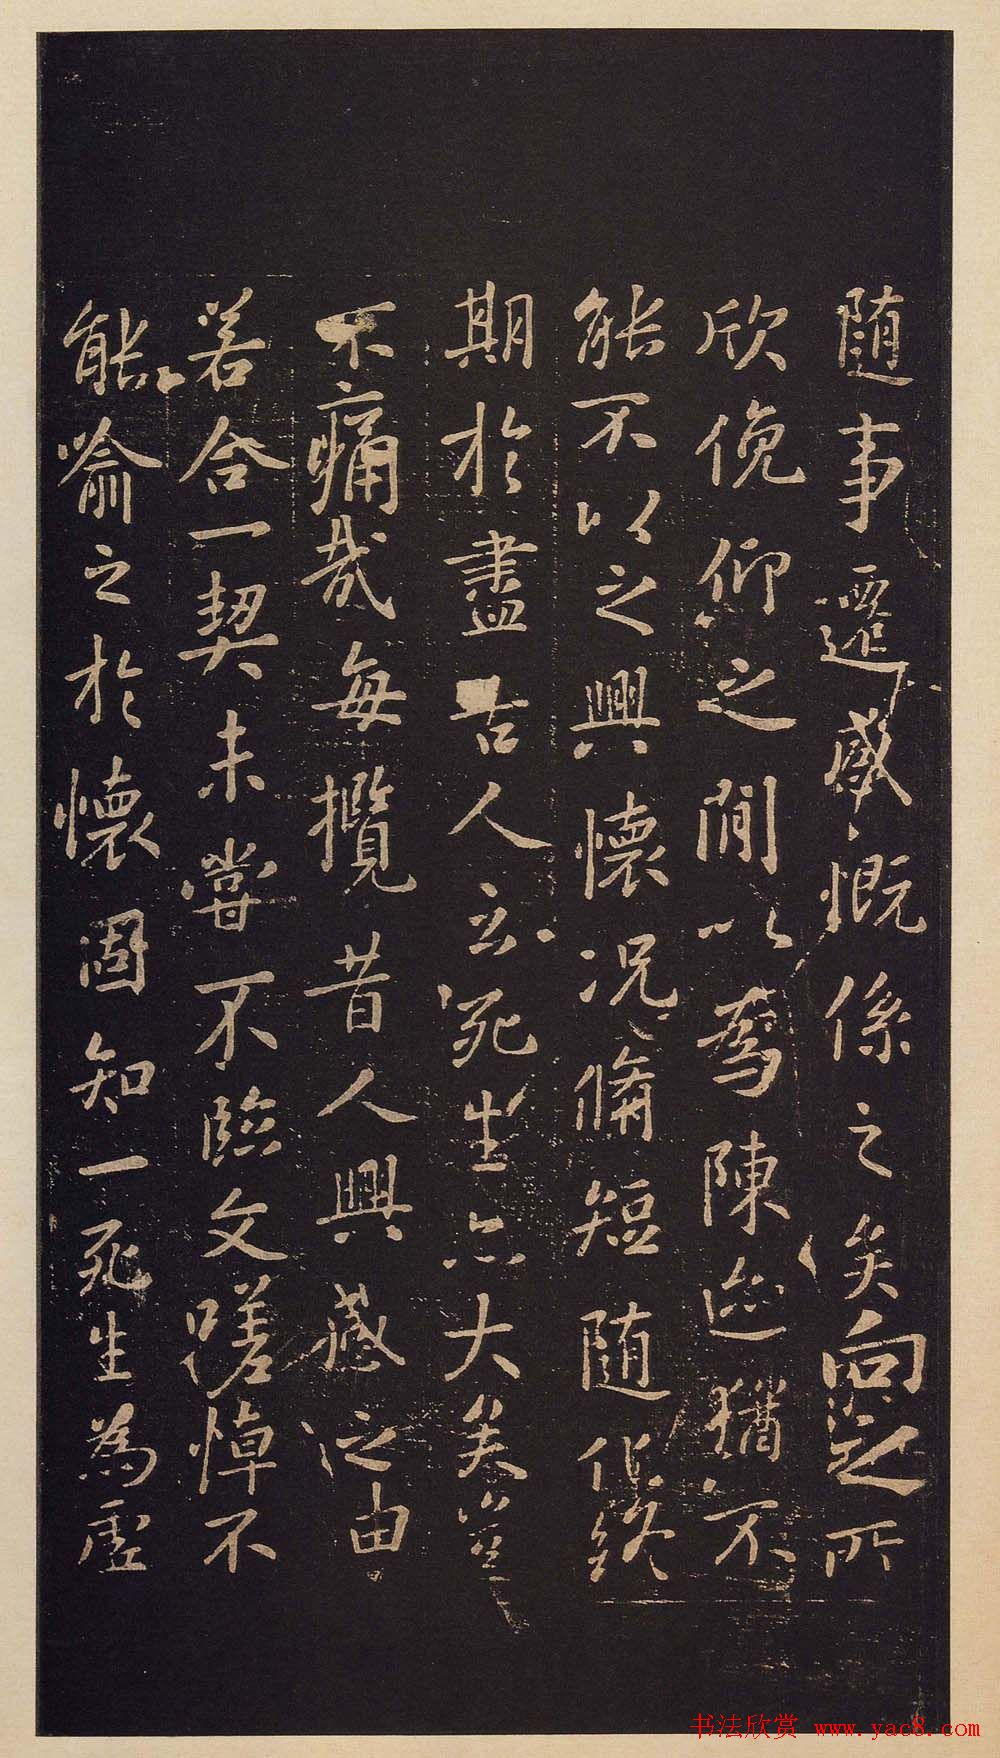 随事遷感慨係之矣向之所
欣俛仰之閒以為陳迹猶不
能不以之興懷况脩短随化終
期於盡古人云死生亦大矣豈
不痛哉每攬昔人興感之由
若合一契未嘗不臨文嗟悼不
能喻之於懷固知一死生為虛
书法欣赏 www.yac8.com